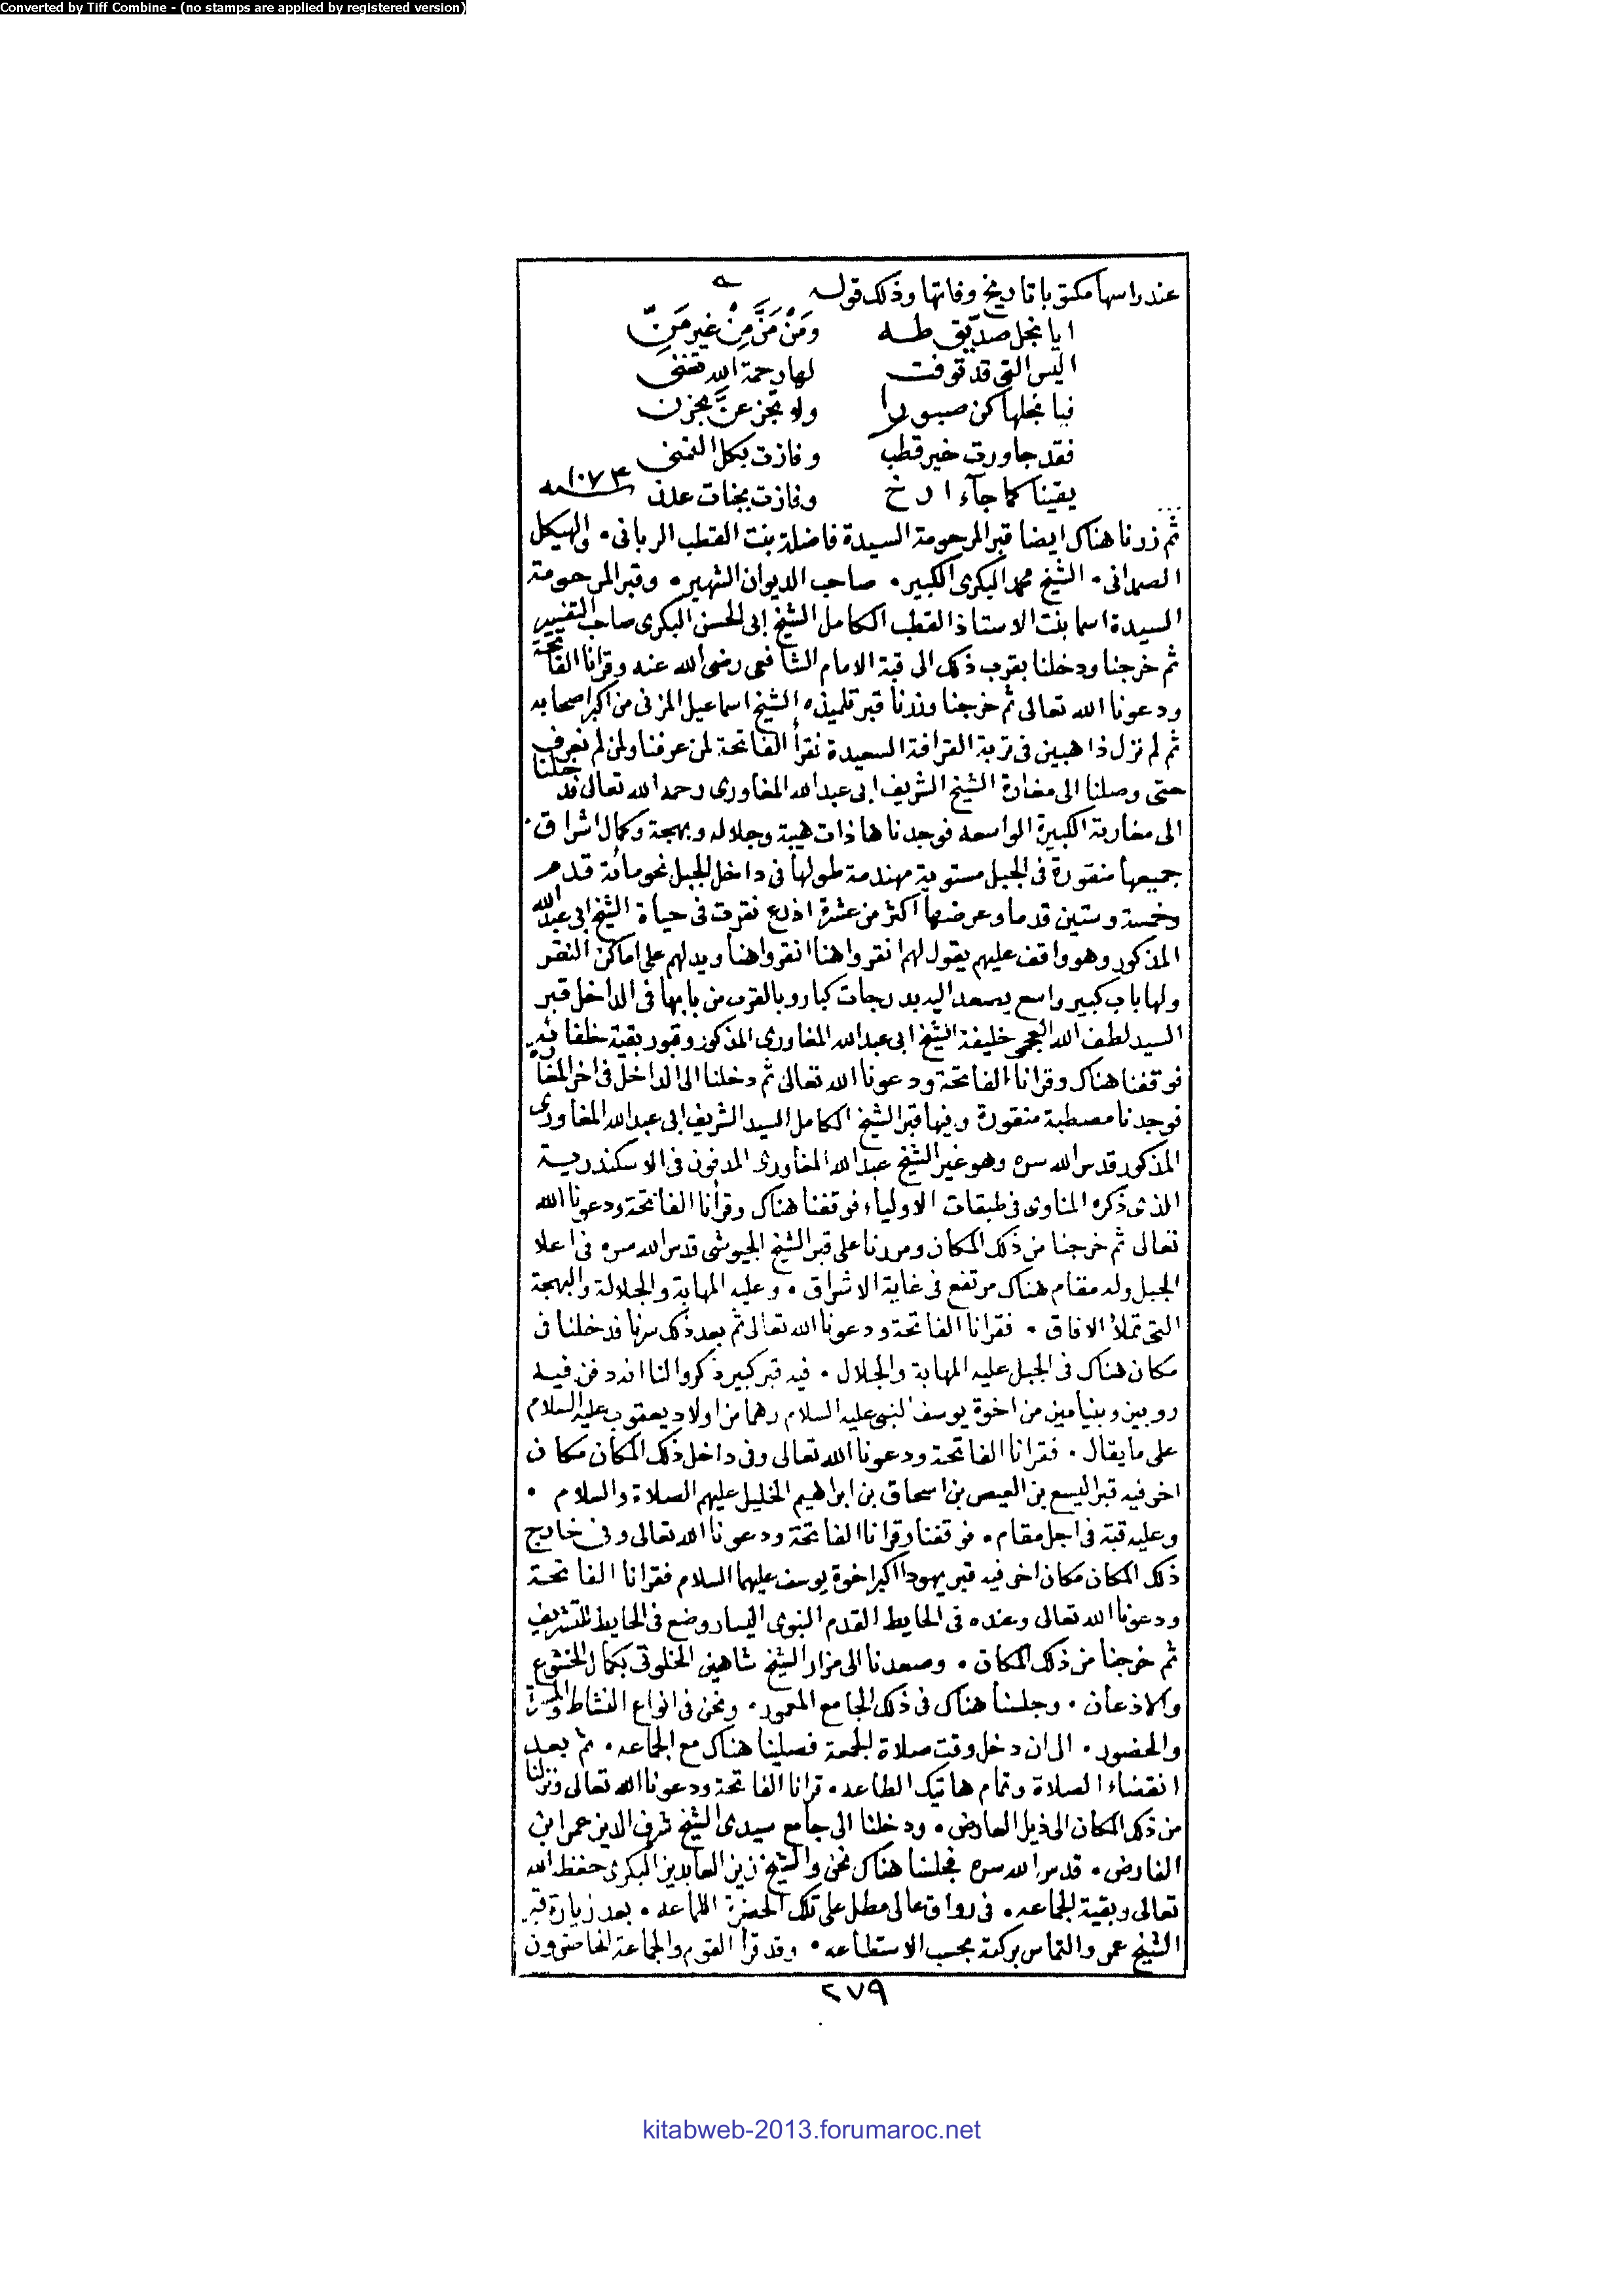 Converted by Tiff Combine - (no stamps are applied by registered version)
عند راسها مكتوبا تاريخ وفاتها وذلك قوله
ايا نجل صديق طه ومَنْ مَنَّ مِنْ غير مَنّ
اليس التي قد توفت لها رحمة الله تغني
فيا نجلها كن صبورا ولا تجزعنّ بحزن
فقد جاورت خير قطب وفازت بكل التمني
يقينا كما جاء ارخ وفازت بجنات عدن ١٠٧٣
ثم زرنا هناك ايضا قبر المرحومة السيدة فاضلة بنت القطب الرباني • والهيكل
الصمداني • الشيخ محمد البكرى الكبير • صاحب الديوان الشهير • وقبر المرحومة
السيدة اسما بنت الاستاذ القطب الكامل الشيخ ابى الحسن البكرى صاحب التفسير
ثم خرجنا ودخلنا بقرب ذلك الى قبة الامام الشافعى رضى الله عنه وقرانا الفاتحة
ودعونا الله تعالى ثم خرجنا وزرنا قبر تلميذه الشيخ اسماعيل المزنى من اكبر اصحابه
ثم لم نزل ذاهبين فى تربة القرافة السعيدة نقرأ الفاتحة لمن عرفنا ولمن لم نعرف
حتى وصلنا الى مغارة الشيخ الشريف ابى عبدالله المغاورى رحمه الله تعالى فدخلنا
الى مغارته الكبيرة الواسعه فوجدناها ذات هيبة وجلاله وبهجة وكمال اشراق •
جميعها منقورة فى الجبل مستوية مهندمة طولها فى داخل الجبل نحو مائة قدم
وخمسة وستين قدما وعرضها اكثر من عشرة اذرع نقرت فى حياة الشيخ ابى عبدالله
المذكور وهو واقف عليهم يقول لهم انقروا هنا انقروا هنا ويدلهم على اماكن النقر
ولها باب كبير واسع يصعد اليه بدرجات كبار وبالقرب من بابها فى الداخل قبر
السيد لطف الله العجمى خليفة الشيخ ابى عبدالله المغاورى المذكور وقبور بقية خلفائه
فوقفنا هناك وقرانا الفاتحة ودعونا الله تعالى ثم دخلنا الى الداخل فى اخر المغارة
فوجدنا مصطبة منقورة وفيها قبر الشيخ الكامل السيد الشريف ابى عبدالله المغاورى
المذكور قدس الله سره وهو غير الشيخ عبدالله المغاورى المدفون فى الاسكندرية
الذى ذكره المناوى فى طبقات الاولياء فوقفنا هناك وقرأنا الفاتحة ودعونا الله
تعالى ثم خرجنا من ذلك المكان ومررنا على قبر الشيخ الجيوشى قدس الله سره فى اعلا
الجبل وله مقام هناك مرتفع فى غاية الاشراق • وعليه المهابة والجلالة والبهجة
التى تملأ الافاق • فقرانا الفاتحة ودعونا الله تعالى ثم بعد ذلك سرنا فدخلنا فى
مكان هناك فى الجبل عليه المهابة والجلال • فيه قبر كبير ذكروا لنا انه دفن فيه
روبين وبنيامين من اخوة يوسف النبى عليه السلام وهما من اولاد يعقوب عليه السلام
على ما يقال • فقرانا الفاتحة ودعونا الله تعالى وفى داخل ذلك المكان مكان
اخر فيه قبر اليسع بن العيص بن اسحاق بن ابراهيم الخليل عليهم الصلاة والسلام •
وعليه قبة فى اجل مقام • فوقفنا وقرانا الفاتحة ودعونا الله تعالى وفى خارج
ذلك المكان مكان اخر فيه قبر يهودا اكبر اخوة يوسف عليهما السلام فقرانا الفاتحة
ودعونا الله تعالى وعنده فى الحايط القدم النبوى اليسار وضع فى الحايط للتشريف
ثم خرجنا من ذلك المكان • وصعدنا الى مزار الشيخ شاهين الخلوتى بكمال الخشوع
والاذعان • وجلسنا هناك فى ذلك الجامع المعمور • ونحن فى انواع النشاط والمسرة
والحضور • الى ان دخل وقت صلاة الجمعة فصلينا هناك مع الجماعه • ثم بعد
انقضاء الصلاة وتمام هاتيك الطاعه • قرانا الفاتحة ودعونا الله تعالى ونزلنا
من ذلك المكان الى ذيل العارض • ودخلنا الى جامع سيدى الشيخ شرف الدين عمر ابن
الفارض • قدس الله سره فجلسنا هناك نحن والشيخ زين العابدين البكرى حفظه الله
تعالى وبقية الجماعه • فى رواق عالى مطل على تلك الحضرة اللماعه • بعد زيارة قبر
الشيخ عمر والتماس بركته بحسب الاستطاعه • وقد قرأ القوم والجماعة الحاضرون
٢٧٩
kitabweb-2013.forumaroc.net